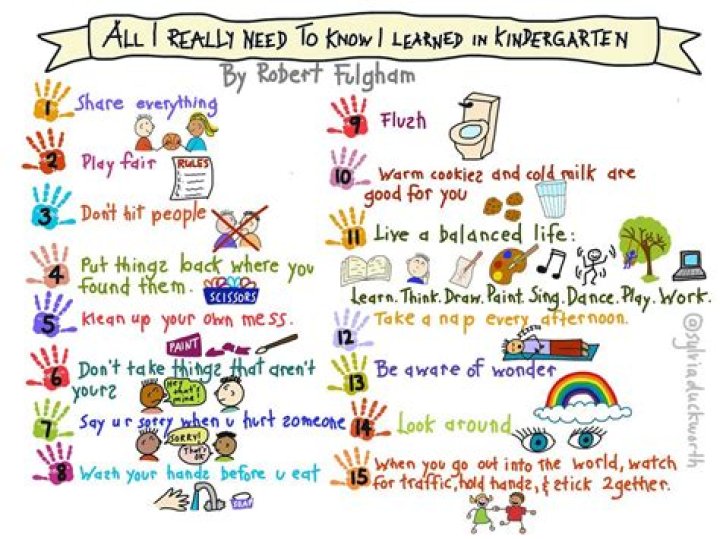 ALL I REALLY NEED TO KNOW I LEARNED IN KINDERGARTEN
By Robert Fulgham
1 Share everything
2 Play fair
RULES
3 Don't hit people
4 Put things back where you
found them.
SCISSORS
5 Klean up your own mess.
PAINT
6 Don't take things that aren't
yours
Hey that's mine!
7 Say ur sorry when u hurt someone
SORRY!
That's OK
8 Wash your hands before u eat
SOAP
9 Flush
10 Warm cookies and cold milk are
good for you
11 Live a balanced life:
Learn. Think. Draw. Paint. Sing. Dance. Play. Work.
12 Take a nap every afternoon.
13 Be aware of wonder
14 Look around
15 When you go out into the world, watch
for traffic, hold hands, & stick 2gether.
@sylviaduckworth